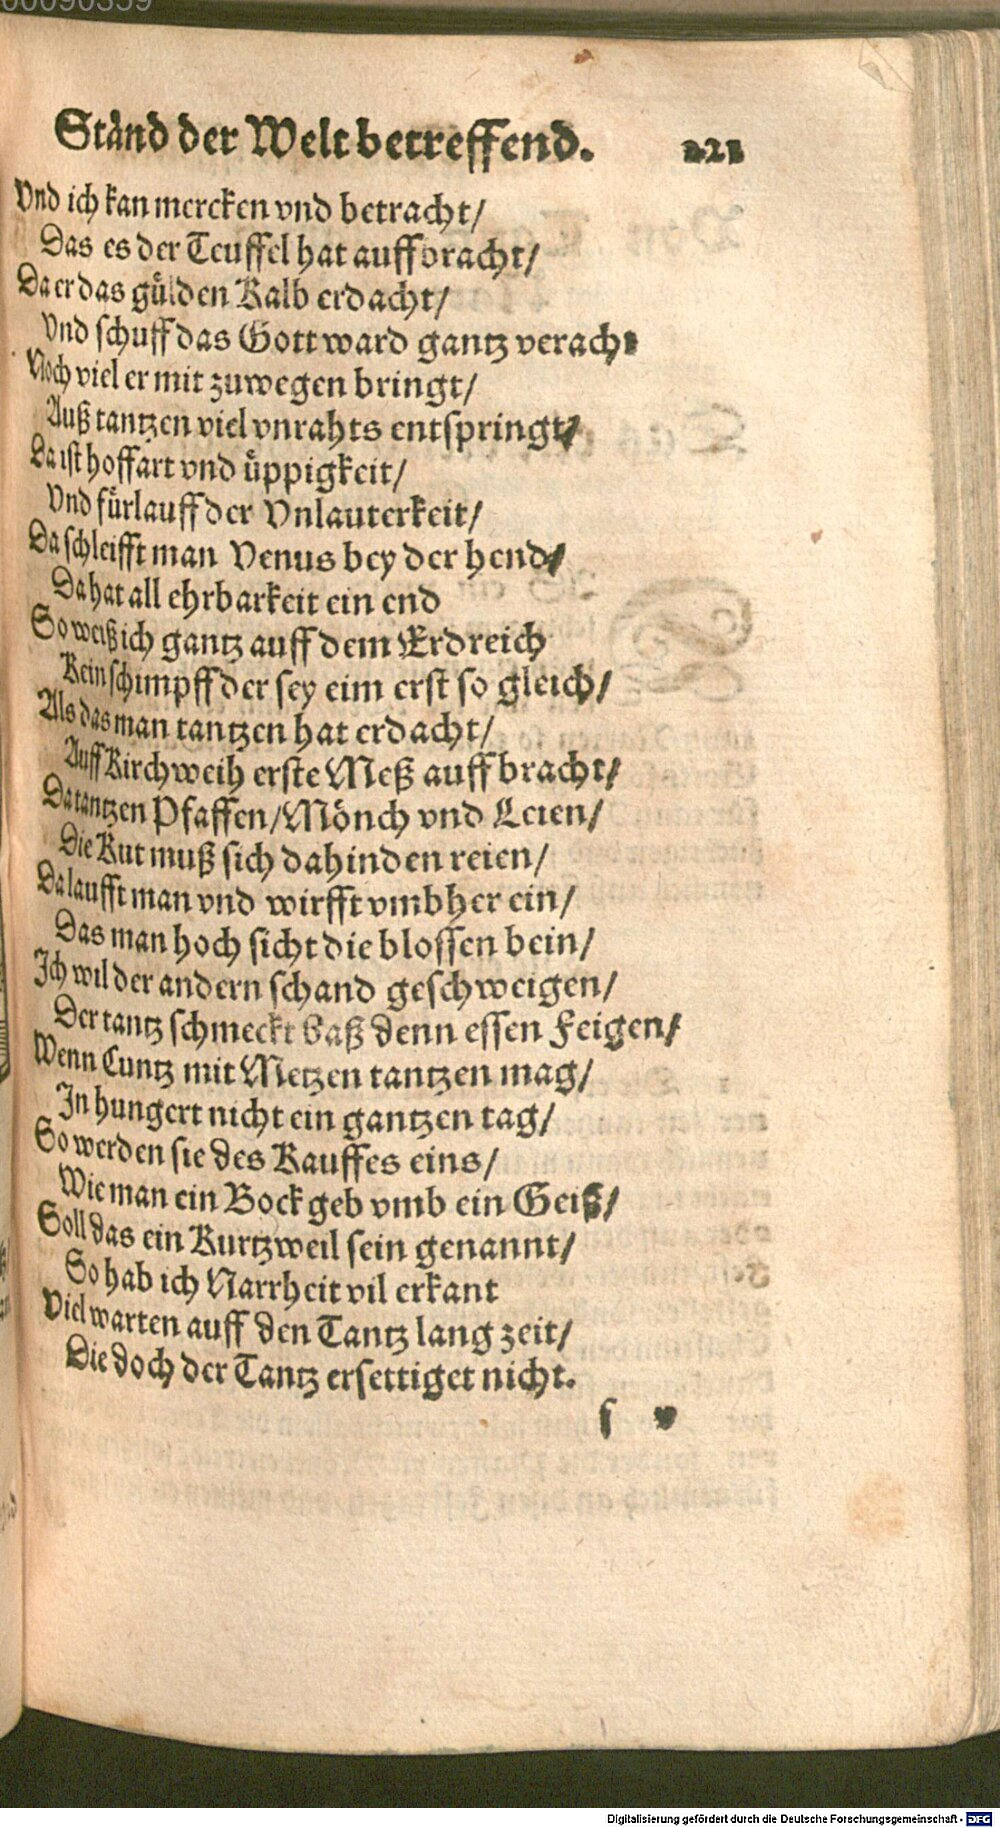 00090359
Ständ der Welt betreffend. 221
Vnd ich kan mercken vnd betracht/
Das es der Teuffel hat auffbracht/
Da er das gülden Kalb erdacht/
Vnd schuff das Gott ward gantz veracht
Noch viel er mit zuwegen bringt/
Auß tantzen viel vnrahts entspringt/
Da ist hoffart vnd üppigkeit/
Vnd fürlauff der Vnlauterkeit/
Da schleifft man Venus bey der hend/
Da hat all ehrbarkeit ein end
So weiß ich gantz auff dem Erdreich
Kein schimpff der sey eim erst so gleich/
Als das man tantzen hat erdacht/
Auff Kirchweih erste Meß auffbracht/
Da tantzen Pfaffen/Mönch vnd Leien/
Die Kut muß sich dahinden reien/
Da laufft man vnd wirfft vmbher ein/
Das man hoch sicht die blossen bein/
Ich wil der andern schand geschweigen/
Der tantz schmeckt baß denn essen Feigen/
Wenn Cuntz mit Metzen tantzen mag/
In hungert nicht ein gantzen tag/
So werden sie des Kauffes eins/
Wie man ein Bock geb vmb ein Geiß/
Soll das ein Kurtzweil sein genannt/
So hab ich Narrheit vil erkant
Viel warten auff den Tantz lang zeit/
Die doch der Tantz ersettiget nicht.
f v
Digitalisierung gefördert durch die Deutsche Forschungsgemeinschaft - DFG